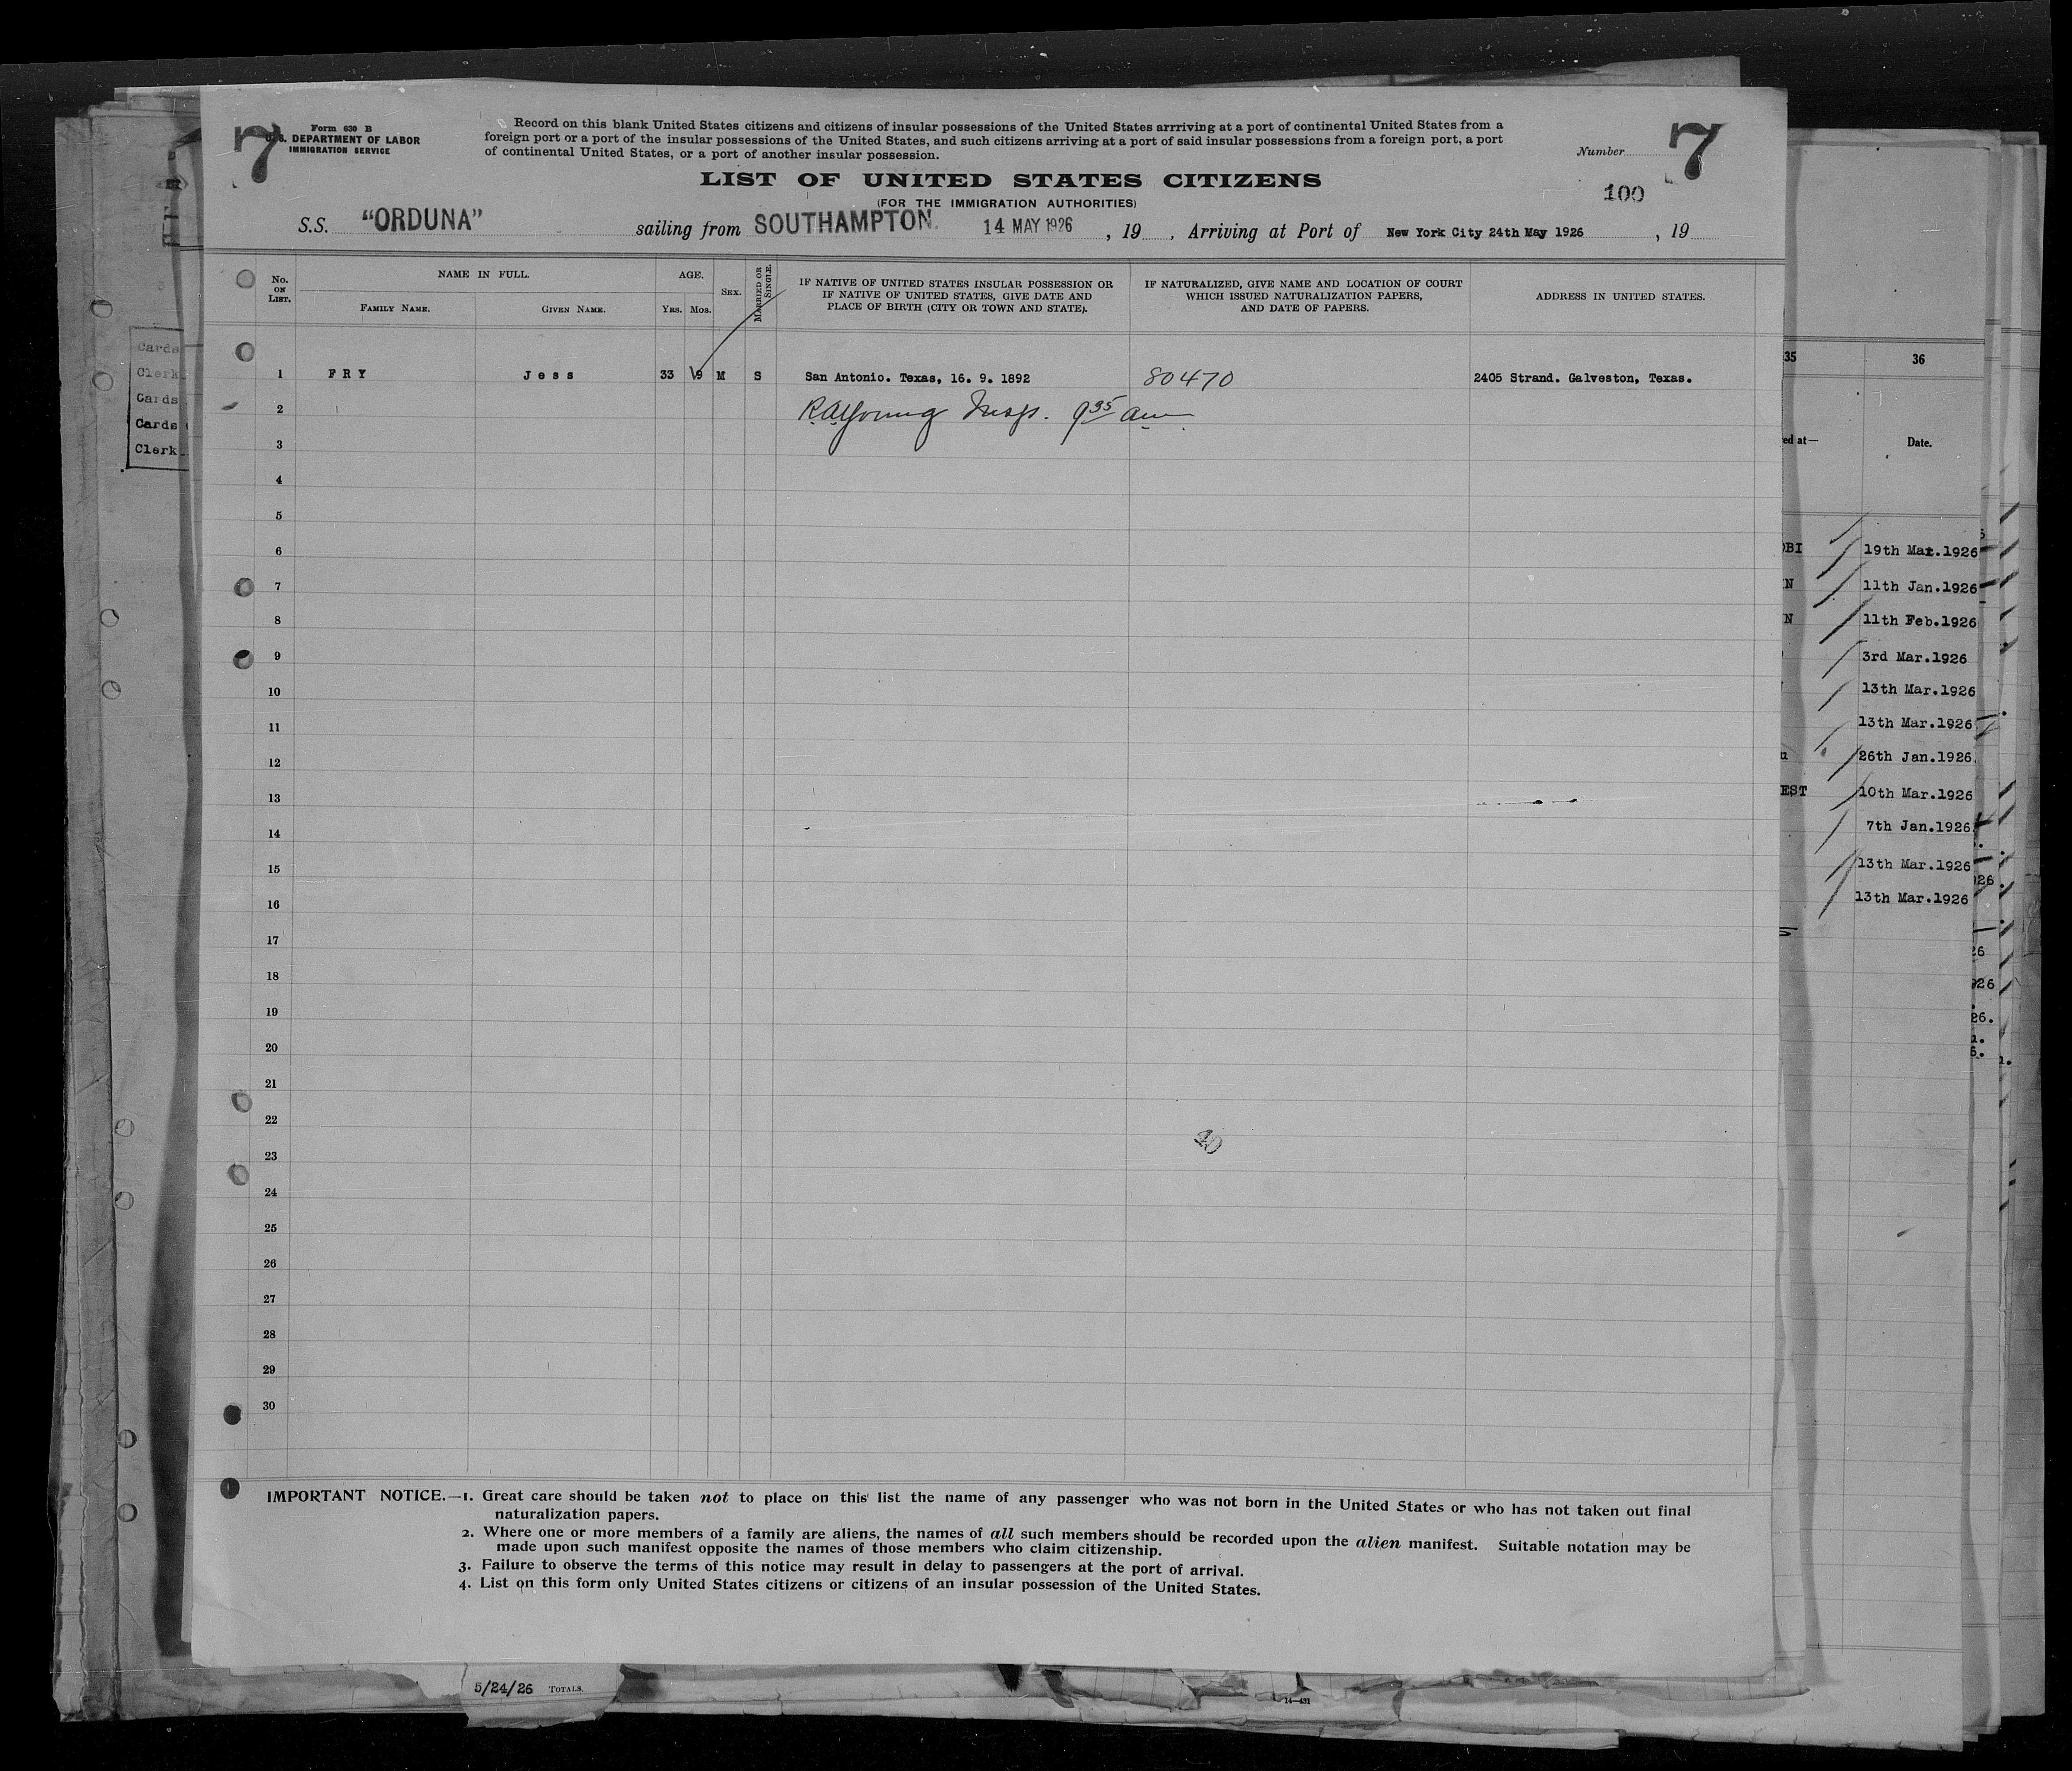 7
Form 630 B
U.S. DEPARTMENT OF LABOR
IMMIGRATION SERVICE
Record on this blank United States citizens and citizens of insular possessions of the United States arrriving at a port of continental United States from a
foreign port or a port of the insular possessions of the United States, and such citizens arriving at a port of said insular possessions from a foreign port, a port
of continental United States, or a port of another insular possession.
Number
7
100
LIST OF UNITED STATES CITIZENS
(FOR THE IMMIGRATION AUTHORITIES)
S.S. "ORDUNA" sailing from SOUTHAMPTON. 14 MAY 1926, 19, Arriving at Port of New York City 24th May 1926, 19
No. ON LIST.
NAME IN FULL.
FAMILY NAME.
GIVEN NAME.
AGE.
YRS. MOS.
SEX.
MARRIED OR SINGLE.
IF NATIVE OF UNITED STATES INSULAR POSSESSION OR
IF NATIVE OF UNITED STATES, GIVE DATE AND
PLACE OF BIRTH (CITY OR TOWN AND STATE).
IF NATURALIZED, GIVE NAME AND LOCATION OF COURT
WHICH ISSUED NATURALIZATION PAPERS,
AND DATE OF PAPERS.
ADDRESS IN UNITED STATES.
1 FRY Jess 33 9 M S San Antonio. Texas, 16. 9. 1892 80470 2405 Strand. Galveston, Texas.
2 RAYoung Insp. 9 35 am
3
4
5
6
7
8
9
10
11
12
13
14
15
16
17
18
19
20
21
22
23
24
25
26
27
28
29
30
IMPORTANT NOTICE.—1. Great care should be taken not to place on this list the name of any passenger who was not born in the United States or who has not taken out final
naturalization papers.
2. Where one or more members of a family are aliens, the names of all such members should be recorded upon the alien manifest. Suitable notation may be
made upon such manifest opposite the names of those members who claim citizenship.
3. Failure to observe the terms of this notice may result in delay to passengers at the port of arrival.
4. List on this form only United States citizens or citizens of an insular possession of the United States.
5/24/26 TOTALS.
14—431
Cards
Clerk
Cards
Cards
Clerk
35
36
ed at—
Date.
OBI 19th Mar.1926
N 11th Jan.1926
N 11th Feb.1926
3rd Mar.1926
13th Mar.1926
13th Mar.1926
26th Jan.1926.
EST 10th Mar.1926
7th Jan.1926
13th Mar.1926
13th Mar.1926